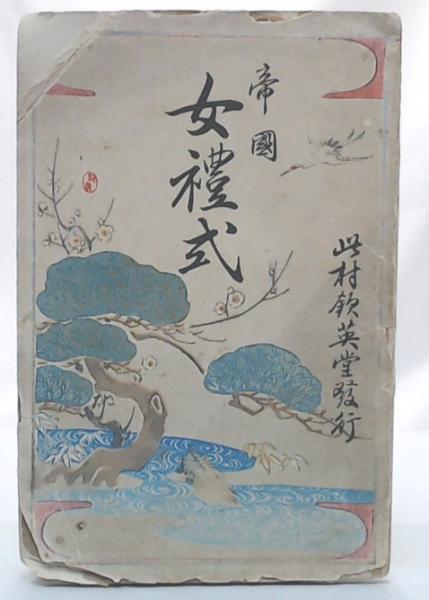 帝國
女禮式
此村欽英堂發行